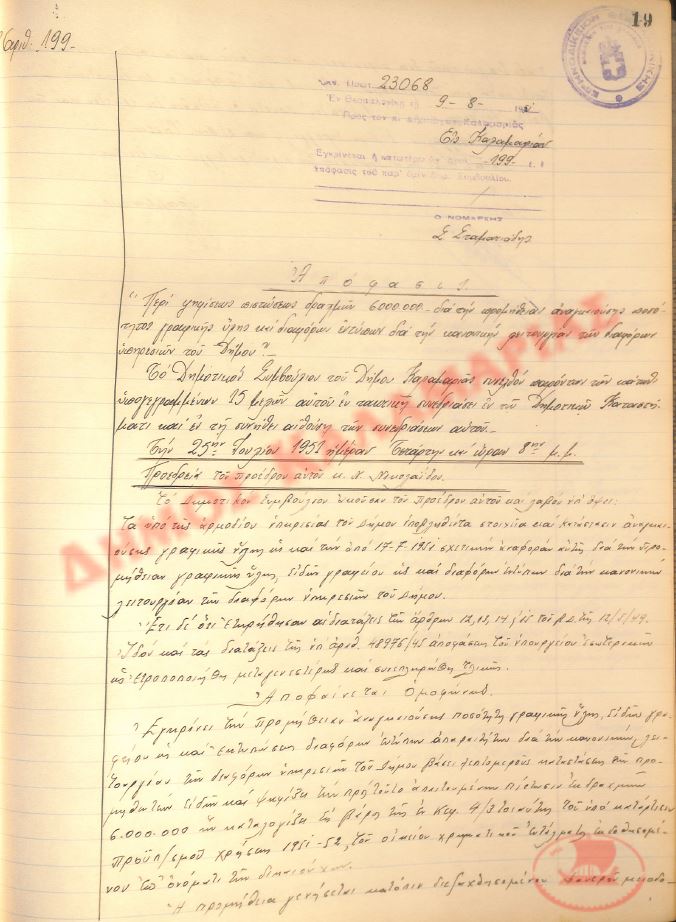 Αριθ. 199-
19
Υπ. Πρωτ. 23068
Εν Θεσσαλονίκη τη 9-8-195
Προς τον κ. Δήμαρχον Καλαμαριάς
Εις Καλαμαριάν
Εγκρίνεται η κατωτέρω υπ' αριθ. 199 ε. έ
απόφασις του παρ' υμίν Δημ. Συμβουλίου.
Ο ΝΟΜΑΡΧΗΣ
Σ. Σταματιάδης
Απόφασις.
"Περί ψηφίσεως πιστώσεως δραχμών 6.000.000- διά την προμήθειαν αναγκαιούσης ποσό-
τητος γραφικής ύλης και διαφόρων εντύπων διά την κανονικήν λειτουργίαν των διαφόρων
υπηρεσιών του Δήμου"-
Το Δημοτικόν Συμβούλιον του Δήμου Καλαμαριάς συνελθόν παρόντων των κάτωθι
υπογεγραμμένων 15 μελών αυτού εν τακτική συνεδριάσει εν τω Δημοτικώ Καταστή-
ματι και εν τη συνήθει αιθούση των συνεδριάσεων αυτού.-
Την 25ην Ιουλίου 1951 ημέραν Τετάρτην και ώραν 8ην μ.μ.
Προεδρεία του προέδρου αυτού κ. Ν. Νικολαΐδου.
Το Δημοτικόν Συμβούλιον ακούσαν του Προέδρου αυτού και λαβόν υπ' όψει:
Τα υπό της αρμοδίου υπηρεσίας του Δήμου υποβληθέντα στοιχεία και κατάστασιν αναγκαι-
ούσης γραφικής ύλης ως και την από 17-7-1951 σχετικήν αναφοράν αυτής διά την προ-
μήθειαν γραφικής ύλης, ειδών γραφείου ως και διαφόρων εντύπων διά την κανονικήν
λειτουργίαν των διαφόρων υπηρεσιών του Δήμου.
Έτι δε ότι ετηρήθησαν αι διατάξεις των άρθρων 12, 13, 14 του Β.Δ. της 12/5/49.
Ιδόν και τας διατάξεις της υπ' αριθ. 48976/45 αποφάσεως του υπουργείου Εσωτερικών
ως ετροποποιήθη μεταγενεστέρως και συνεπληρώθη τελικώς.
Αποφαίνεται Ομοφώνως.
Εγκρίνει την προμήθειαν αναγκαιούσης ποσότητος γραφικής ύλης, ειδών γρα-
φείου ως και εκτυπώσεως διαφόρων εντύπων απαραιτήτων διά την κανονικήν λει-
τουργίαν των διαφόρων υπηρεσιών του Δήμου βάσει λεπτομερούς καταστάσεως των προ-
μηθευτέων ειδών και ψηφίζει την προς τούτο απαιτουμένην πίστωσιν εκ δραχμών
6.000.000 ην καταλογίζει εις βάρος της εν Κεφ. 4/3 τοιαύτης του υπό κατάρτισιν
προϋπ/σμού χρήσεως 1951-52, του οικείου χρηματικού εντάλματος εκδοθησομέ-
νου επ' ονόματι των δικαιούχων.
Η προμήθεια γενήσεται κατόπιν διεξαχθησομένου φανερού μειοδο-
ΔΗΜΟΣ ΚΑΛΑΜΑΡΙΑΣ